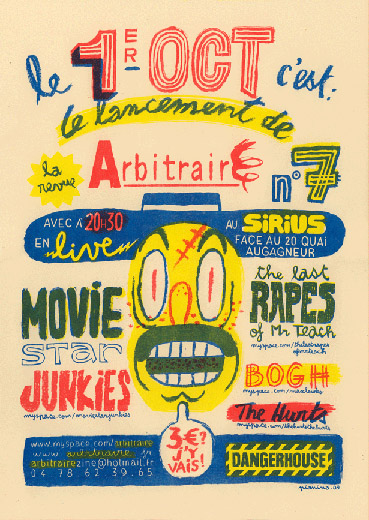 le 1ER OCT c'est:
le lancement de
la revue
Arbitraire
n°7
AVEC À 20H30
EN live
AU SiRiUS
FACE AU 20 QUAI
AUGAGNEUR
MOViE
Star
JUNKiES
the last
RAPES
of Mr Teach
BOGH
The Hunts
3€?
J'Y
VAIS!
www.myspace.com/arbitraire
www.arbitraire.fr
arbitrairezine@hotmail.fr
04 78 62 39 65
DANGERHOUSE